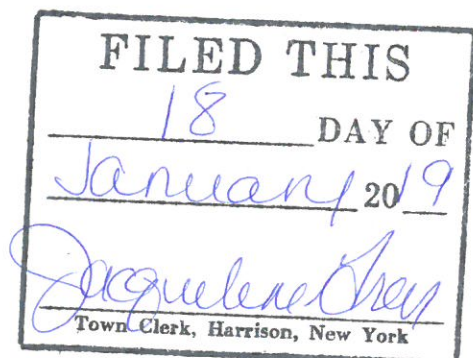 FILED THIS
18 DAY OF
January 2019
Jacqueline
Town Clerk, Harrison, New York